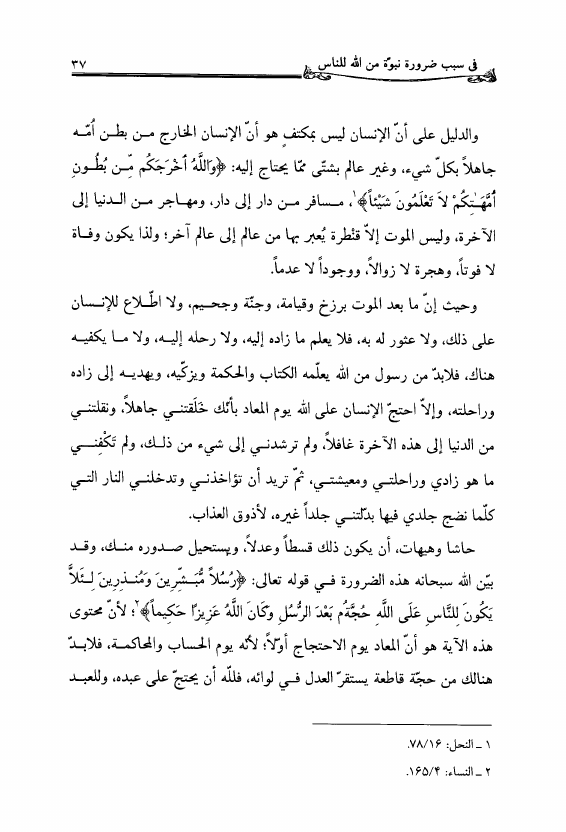 في سبب ضرورة نبوّة من الله للناس ٣٧
والدليل على أنّ الإنسان ليس بمكتفٍ هو أنّ الإنسان الخارج مـن بطـن اُمّـه
جاهلاً بكلّ شيء، وغير عالم بشتّى ممّا يحتاج إليه: ﴿وَٱللَّهُ أَخْرَجَكُم مِّـن بُطُـونِ
أُمَّهَـٰتِكُمْ لاَ تَعْلَمُونَ شَيْئاً﴾١، مـسافر مـن دار إلى دار، ومهـاجر مـن الـدنيا إلى
الآخرة، وليس الموت إلاّ قنْطرة يُعبر بها من عالم إلى عالم آخر؛ ولذا يكون وفـاة
لا فوتاً، وهجرة لا زوالاً، ووجوداً لا عدماً.
وحيث إنّ ما بعد الموت برزخ وقيامة، وجنّة وجحـيم، ولا اطّـلاع للإنـسان
على ذلك، ولا عثور له به، فلا يعلم ما زاده إليه، ولا رحله إليـه، ولا مـا يكفيـه
هناك، فلابدّ من رسول من الله يعلّمه الكتاب والحكمة ويزكّيه، ويهديـه إلى زاده
وراحلته، وإلاّ احتجّ الإنسان على الله يوم المعاد بأنّك خَلَقتنـي جاهلاً، ونقلتنـي
من الدنيا إلى هذه الآخرة غافلاً، ولم ترشدنـي إلى شيء من ذلـك، ولم تَكْفِنــي
ما هو زادي وراحلتـي ومعيشتـي، ثمّ تريد أن تؤاخذنـي وتدخلنـي النار التـي
كلّما نضج جلدي فيها بدّلتنـي جلداً غيره، لأذوق العذاب.
حاشا وهيهات، أن يكون ذلك قسطاً وعدلاً، ويستحيل صـدوره منـك، وقـد
بيّن الله سبحانه هذه الضرورة فـي قوله تعالى: ﴿رُسُلاً مُّبَـشِّرِينَ وَمُنـذِرِينَ لِـئَلاَّ
يَكُونَ لِلنَّاسِ عَلَى اللَّهِ حُجَّةُم بَعْدَ الرُّسُلِ وَكَانَ اللَّهُ عَزِيزًا حَكِيماً﴾٢؛ لأنّ محتوى
هذه الآية هو أنّ المعاد يوم الاحتجاج أوّلاً؛ لأنّه يوم الحساب والمحاكمـة، فلابـدّ
هنالك من حجّة قاطعة يستقرّ العدل فـي لوائه، فللّه أن يحتجّ على عبده، وللعبـد
١ ـ النحل: ٧٨/١۶.
٢ ـ النساء: ١۶۵/۴.